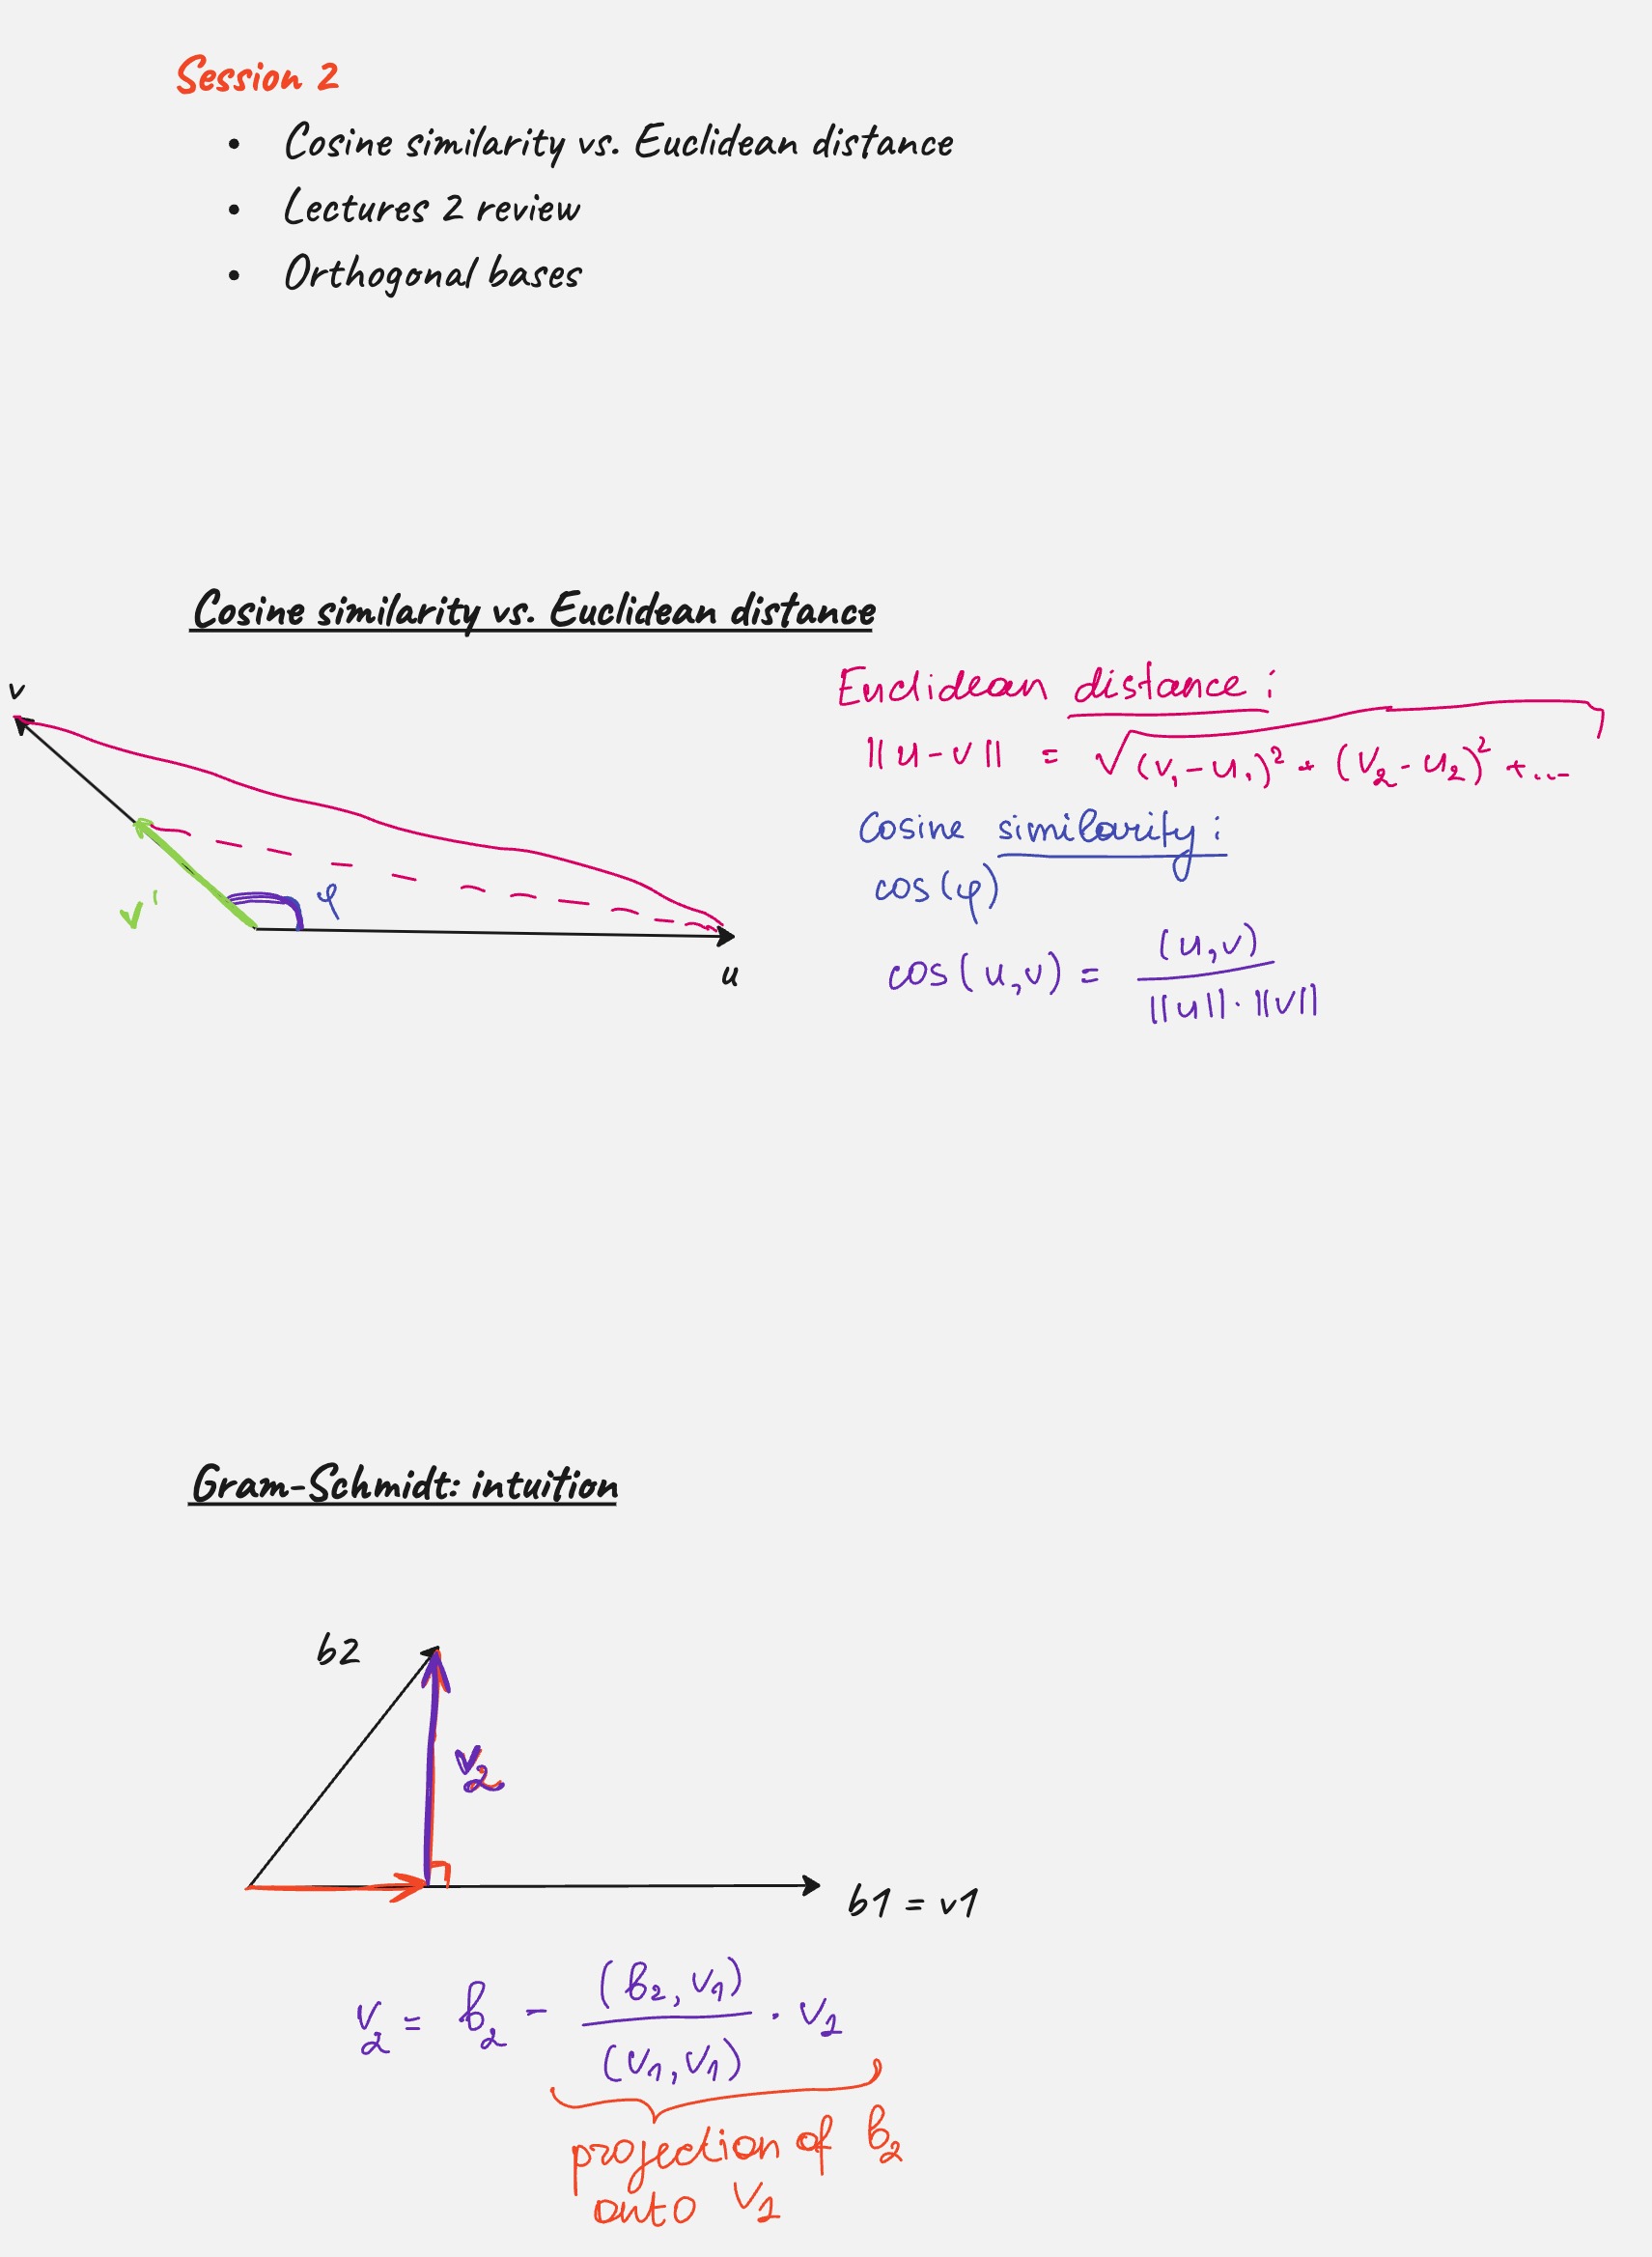 Session 2
• Cosine similarity vs. Euclidean distance
• Lectures 2 review
• Orthogonal bases
Cosine similarity vs. Euclidean distance
v
v'
φ
u
Euclidean distance:
||u-v|| = √(v₁-u₁)² + (v₂-u₂)² + ...
Cosine similarity:
cos(φ)
cos(u,v) = (u,v) / ||u||·||v||
Gram-Schmidt: intuition
b2
v₂
b1 = v1
v₂ = b₂ - (b₂,v₁) / (v₁,v₁) · v₁
projection of b₂
onto v₁